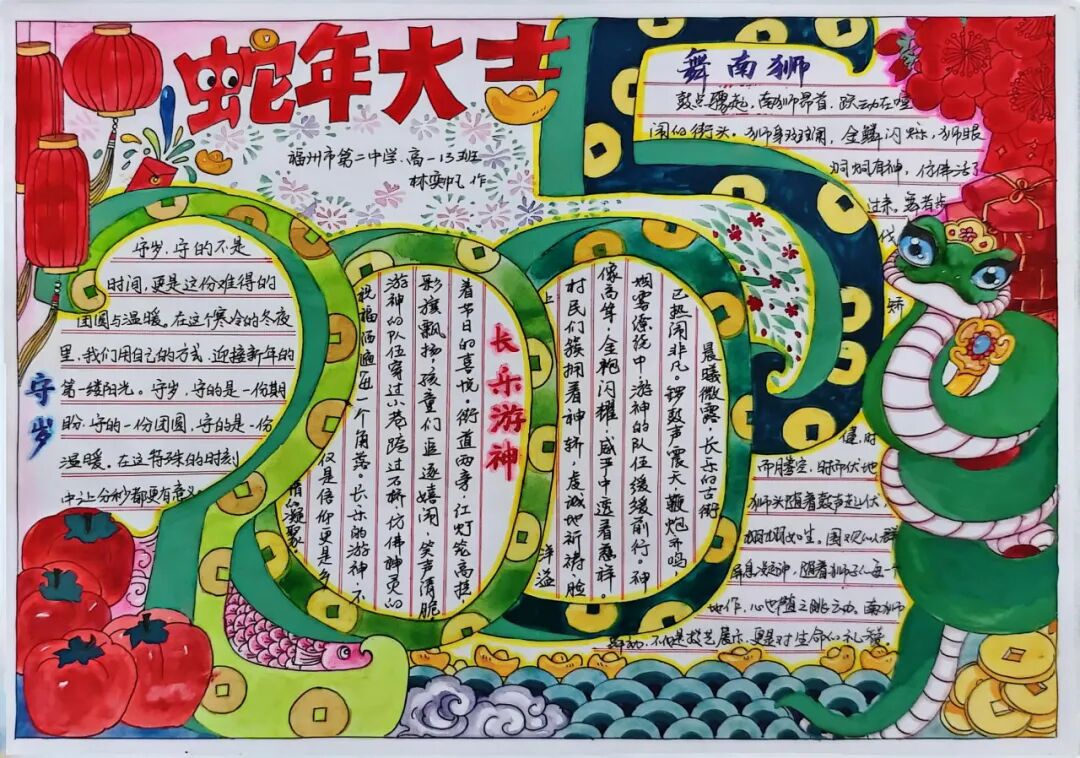 蛇年大吉
福州市第二中学·高一13班
林 作
守岁
守岁,守的不是
时间,更是这份难得的
团圆与温暖。在这个寒冷的冬夜
里,我们用自己的方式,迎接新年的
第一缕阳光。守岁,守的是一份期
盼,守的一份团圆,守的是一份
温暖。在这特殊的时刻
中让分秒都更有意义
长乐游神
晨曦微露,长乐的古街
已热闹非凡。锣鼓声震天,鞭炮齐鸣,
烟雾缭绕中,游神的队伍缓缓前行。神
像高耸,金袍闪耀,威严中透着慈祥。
村民们簇拥着神轿,虔诚地祈祷,脸
上洋溢
着节日的喜悦。街道两旁,红灯笼高挂
彩旗飘扬,孩童们追逐嬉闹,笑声清脆
游神的队伍穿过小巷,跨过石桥,仿佛神灵的
祝福洒遍每一个角落。长乐的游神,不
仅是信仰更是乡
情的凝聚。
舞南狮
鼓点骤起,南狮昂首,跃动在喧
闹的街头。狮身斑斓,金鳞闪烁,狮眼
炯炯有神,仿佛活了
过来。舞者步
伐
矫
健,时
而腾空,时而伏地
狮头随着鼓声起伏,
栩栩如生。围观的人群
屏息凝神,随着狮子的每一个
动作,心也随之跳动。南狮
舞动,不仅是技艺展示,更是对生命的礼赞